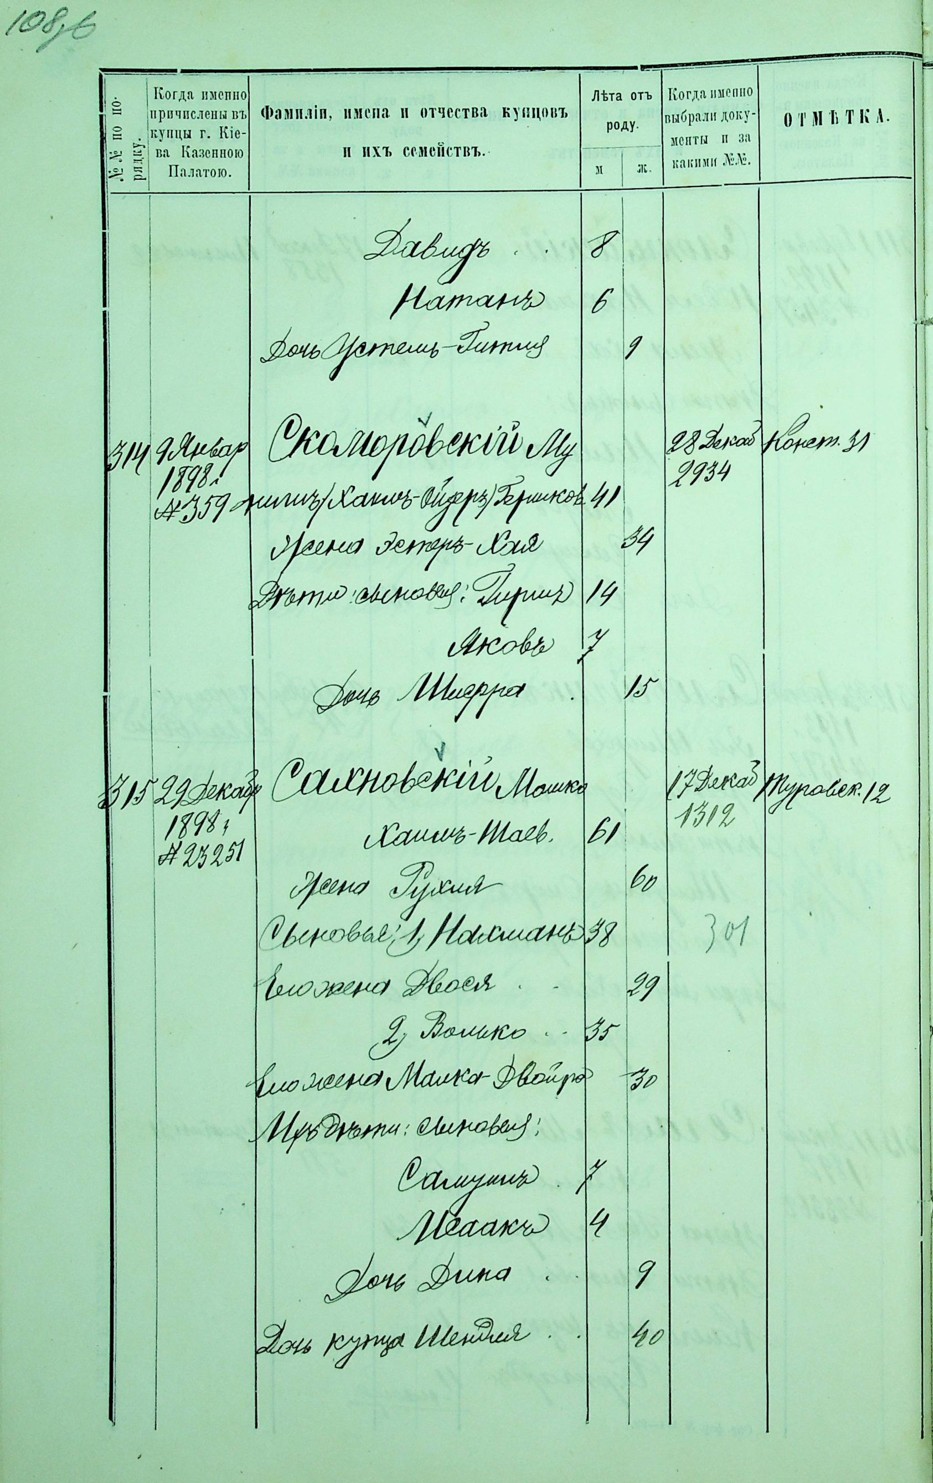 108,б
№№ по порядку.
Когда именно причислены въ купцы г. Кіева Казенною Палатою.
Фамиліи, имена и отчества купцовъ и ихъ семействъ.
Лѣта отъ роду.
м
ж.
Когда именно выбрали документы и за какими №№.
ОТМѢТКА.
Давидъ . . 8
Натанъ 6
Дочь Устель-Гитля 9
314 9 Январ Скоморовскій Му 28 Декаб Конст. 31
1898 г 2934
№ 359 Хаимъ-Ойзеръ) Гершков. 41
Жена Эстеръ-Хая 34
Дѣти: сыновья: Гершъ 14
Яковъ 7
Дочь Шифра 15
315 29 Декабр Сахновскій Мошко 17 Декаб Туровск. 12
1898 г 1312
№ 23251
Хаимъ-Шаев. 61
Жена Рухля 60
Сыновья: 1, Нахманъ 38 301
Его жена Двося . . 29
2, Волько . . 35
Его жена Малка-Двойра 30
Ихъ дѣти: сыновья:
Самуилъ . 7
Исаакъ 4
Дочь Дина . . 9
Дочь купца Шендля . . 40